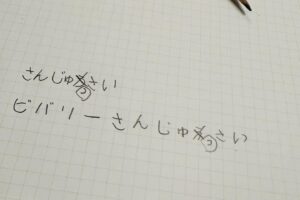 さんじゅっさい
ビバリーさんじゅっさい